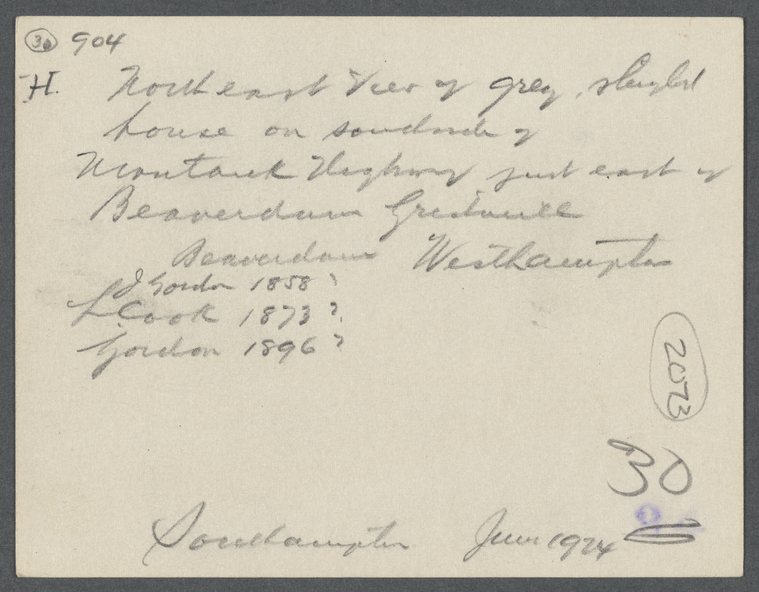 30 904
H. Northeast view of grey, shingled
house on southside of
Montauk Highway just east of
Beaverdam Gristmill
Beaverdam Westhampton
J Gordon 1858 ?
L. Cook 1873 ?
Gordon 1896 ?
2073
30
Southampton June 1924